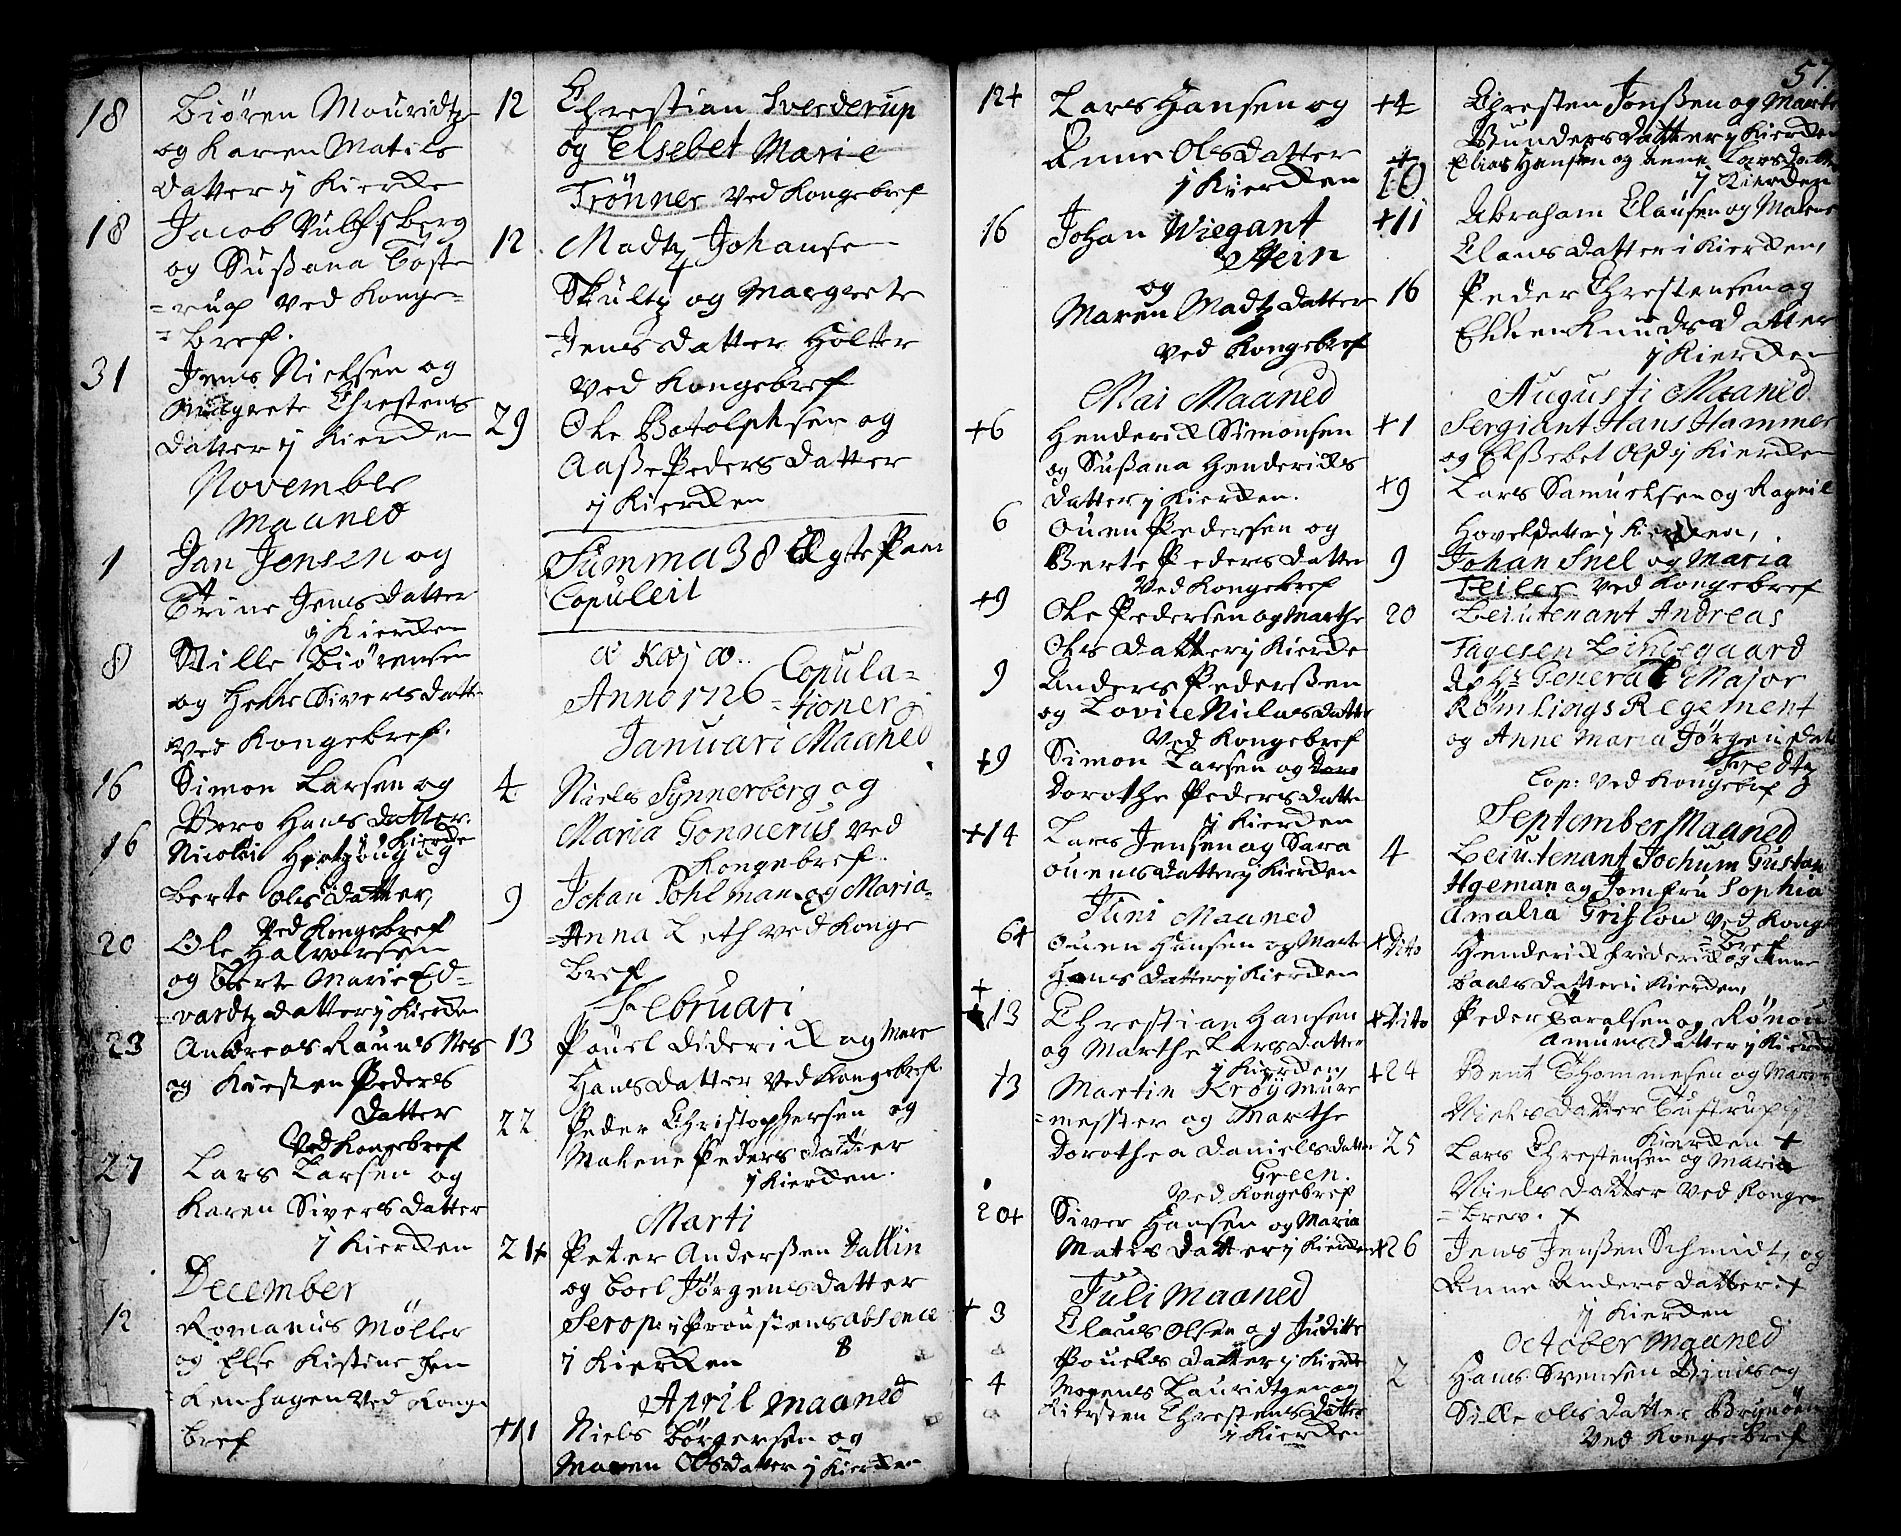 18 Biören Mouridtz
og Karen Matis
datter j Kircken
18 Jacob Vulfsberg
og Sussana Toste
=rup ved Konge=
=bref.
31 Jens Nielsen og
Margrete Chrestens
datter j Kircken
November
Maaned
1 Jan Jensen og
Trine Jensdatter
j Kircken
8 Nille Biörensen
og Helle Siversdatter
ved Kongebref.
16 Simon Larsen og
Hansdatter
j Kircken
16 Nicolai og
Berte Olsdatter,
ved Kongebref
20 Ole Halvorsen
og Berte Marie Ed=
=vardtz datter j Kircken
23 Andreas Rauns Nes
og Kirsten Peders
datter
Ved Kongebref
27 Lars Larsen og
Karen Siversdatter
j Kircken
December
12 Romanus Møller
og Else Kistine Hen
=kenhagen ved Konge
bref
12 Chrestian Sverderup
og Elsebet Marie
Trønner ved Kongebref
12 Madtz Johansen
Skultz og Margrete
Jensdatter Holter
ved Kongebref
29 Ole Botolphsen og
Aasse Pedersdatter
j Kircken
Summa 38 Ægte Paar
Copuleit
Anno 1726 Copula=
=tioner
Januari Maaned
4 Niels Synnerborg og
Maria Gonnerus ved
Kongebref.
9 Johan Pohlman og Maria
=Anna Leth ved Konge
bref
Februari
13 Pouel Diderick og Mare
Hansdatter ved Kongebref.
22 Peder Christophersen og
Malene Pedersdatter
j Kircken.
Marti
21+ Peter Anderssen Dallin
og Boel Jørgensdatter
Serop: i Proustens absence
j Kircken 8
April maaned
+11 Niels Børgersen og
Maren Olsdatter j Kircken
12+ Lars Hansen og
Anne Olsdatter
j Kircken
16 Johan Wiegant
Stein
og
Maren Madtzdatter
ved Kongebref
Mai Maaned
+6 Henderick Simonsen
og Sussana Hendericks
datter j Kircken.
6 Ouen Pedersen og
Berte Pedersdatter
ved Kongebref
+9 Ole Pedersen og Marthe
Olsdatter j Kircke
9 Anders Pederssen
og Lovise Nielsdatter
Ved Kongebref
+9 Simon Larsen og
Dorothe Pedersdatter
j Kircken
+14 Lars Jensen og Sara
Ouensdatter j Kircken
Juni Maaned
6+ Ouen Hansen og Marte
Hansdatter j Kircken
+
+13 Chrestian Hansen
og Marthe Larsdatter
j Kircken
13 Martin Krøy Mure
=mester og Marthe
Dorothea Danielsdatter
Green.
Ved Kongebref
20+ Siver Hansen og Maria
Matisdatter j Kircken
Juli Maaned
+ 3 Claus Olsen og Juditte
Pouelsdatter j Kircke
4 Mogens Lauridtzen og
Kiersten Chrestensdatter
j Kircken
57
+4 Chresten Jonssen og Marte
Gundersdatter j Kircken
+
10 Elias Hansen og Anne Larsdatter
j Kircken
+11 Abraham Clausen og Malene
Clausdatter i Kircken,
16 Peder Chrestensen og
Ellen Knudsdatter
j Kircken
Augusti Maaned
+1 Sergiant Hans Hammer
og Elssebet Olsd j Kircken
+9 Lars Samuelsen og Ragnil
datter j Kircken,
9 Johan Snel og Maria
Teiler ved Kongebref
20 Leiutenant Andreas
Tagesen Lindegaard
af Hr General Major
Römlings Regement
og Anne Maria Jørgensdatter
Cop: Ved Kongebref
September Maaned
4 Leiutenant Jochum Gustav
Ageman og Jomfru Sophia
Amalia Grislou ved Konge
=bref
+Dito Henderick Friderick og Anne
datter i Kircken,
+Dito Peder Toralsen og Rønou
Amunsdatter j Kircken
+24 Bent Thommesen og Maren
Nielsdatter Tustrup j
Kircken +
25 Lars Chrestensen og Maria
Nielsdatter ved Konge
=brev. +
+26 Jens Jenssen Schmidt, og
Anne Andersdatter +
j Kircken
October maaned
2 Hans Svensen og
Sille Olsdatter
Ved Kongebref